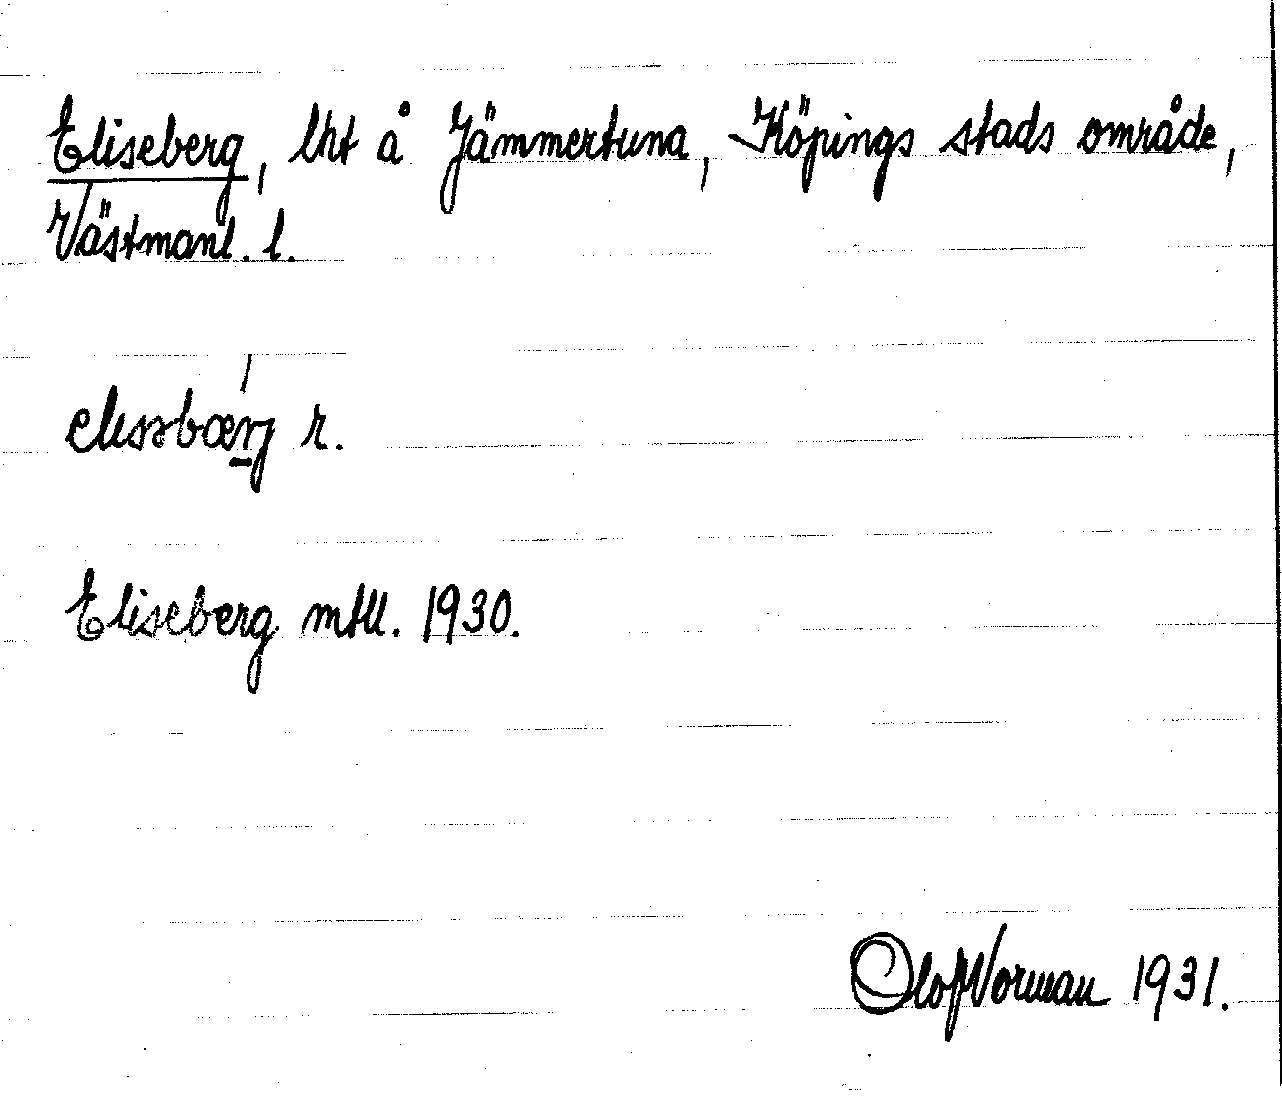 Eliseberg, lht å Jämmertuna, Köpings stads område,
Västmanl. l.
r.
Eliseberg mtll. 1930.
Olof Vorman 1931.